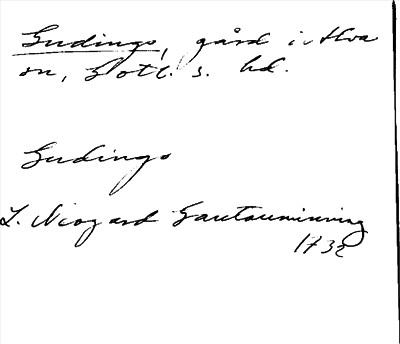 Gudings, gård i Alva
sn, Gotl. s. hd.
Gudings
L. Neogard Gautauminning
1732